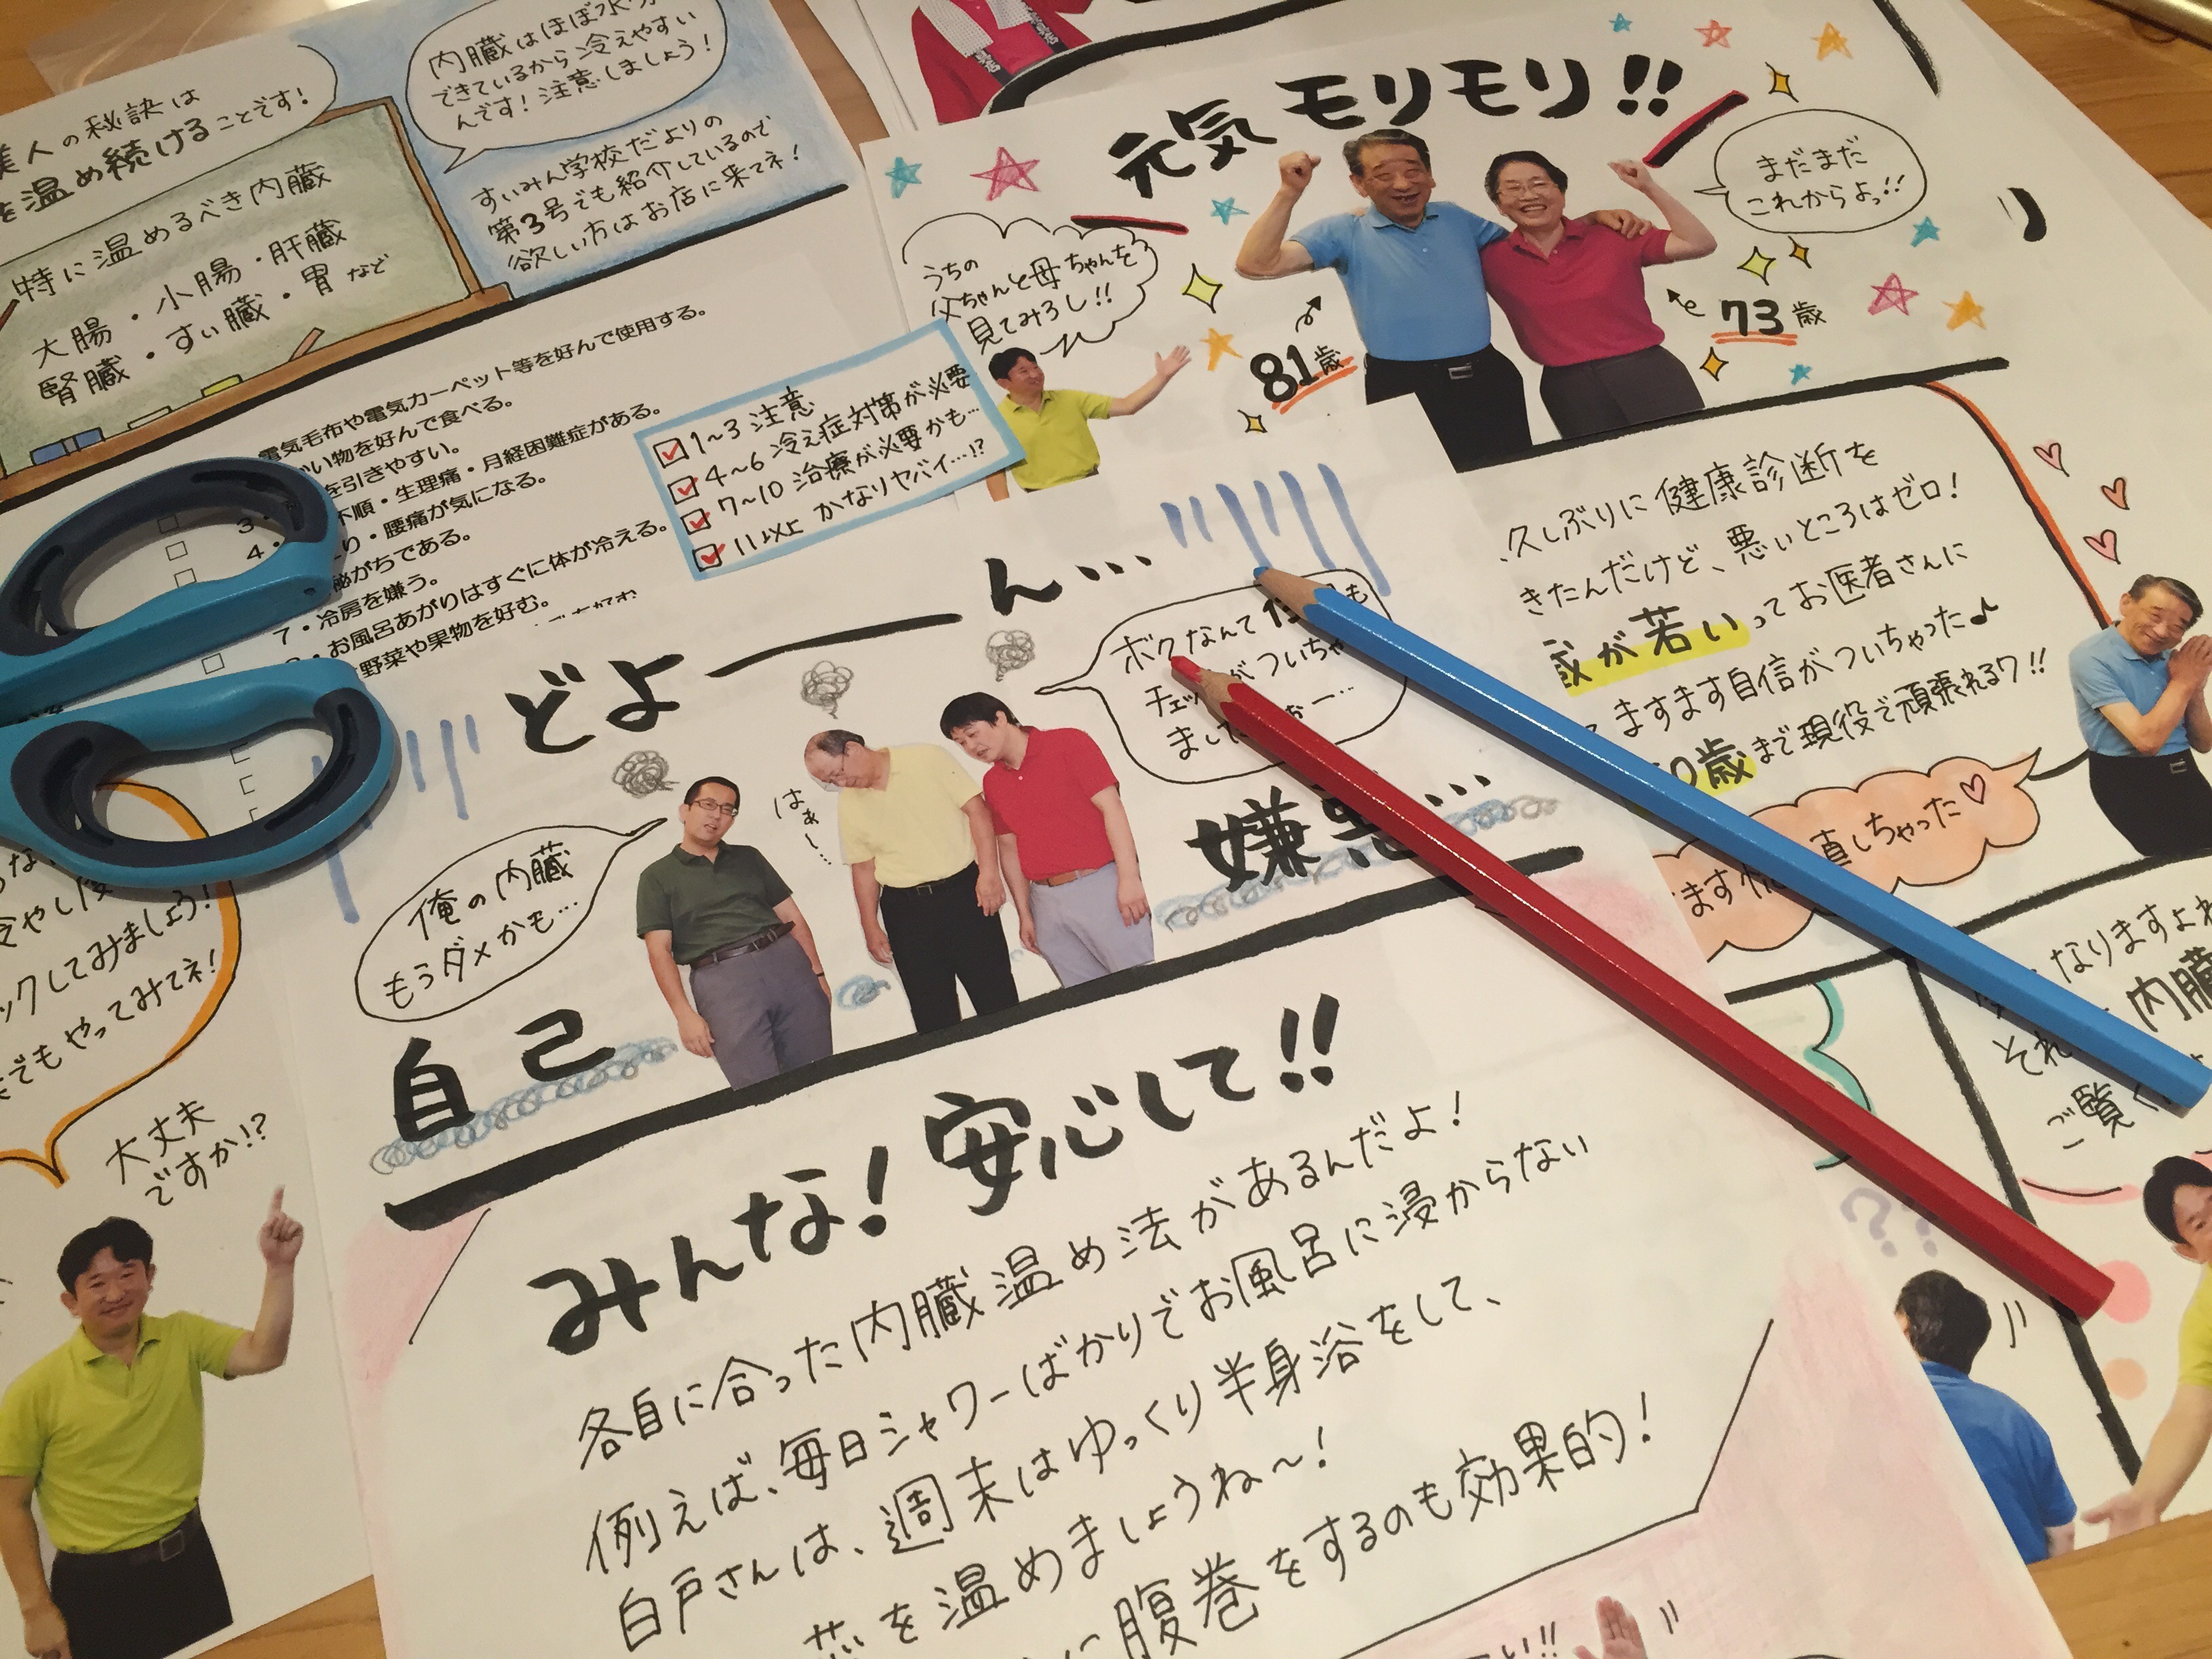 美人の秘訣は
を温め続けることです!
内臓はほぼ水分
できているから冷えやすい
んです!注意しましょう!
すいみん学校だよりの
第3号でも紹介しているので
欲しい方はお店に来てネ!
特に温めるべき内臓
大腸・小腸・肝臓
腎臓・すい臓・胃など
電気毛布や電気カーペット等を好んで使用する。
い物を好んで食べる。
を引きやすい。
不順・生理痛・月経困難症がある。
り・腰痛が気になる。
秘がちである。
7・冷房を嫌う。
・お風呂あがりはすぐに体が冷える。
野菜や果物を好む。
1~3 注意
4~6 冷え症対策が必要
7~10 治療が必要かも…
11以上 かなりヤバイ…!?
元気モリモリ!!
うちの
父ちゃんと母ちゃんを
見てみろし!!
まだまだ
これからよっ!!
81歳
73歳
久しぶりに健康診断を
きたんだけど、悪いところはゼロ!
臓が若いってお医者さんに
ますます自信がついちゃった♪
0歳まで現役で頑張れるワ!!
直しちゃった♡
どよーーん…
ボクなんて
チェックがついちゃ
まし
はぁ〜…
俺の内臓
もうダメかも…
自己
嫌悪…
冷やし
ックしてみましょう!
でもやってみてネ!
大丈夫
ですか!?
みんな!安心して!!
各自に合った内臓温め法があるんだよ!
例えば、毎日シャワーばかりでお風呂に浸からない
白戸さんは、週末はゆっくり半身浴をして、
芯を温めましょうね〜!
に腹巻をするのも効果的!
なりますよね
内臓
ご覧く
??
い!!